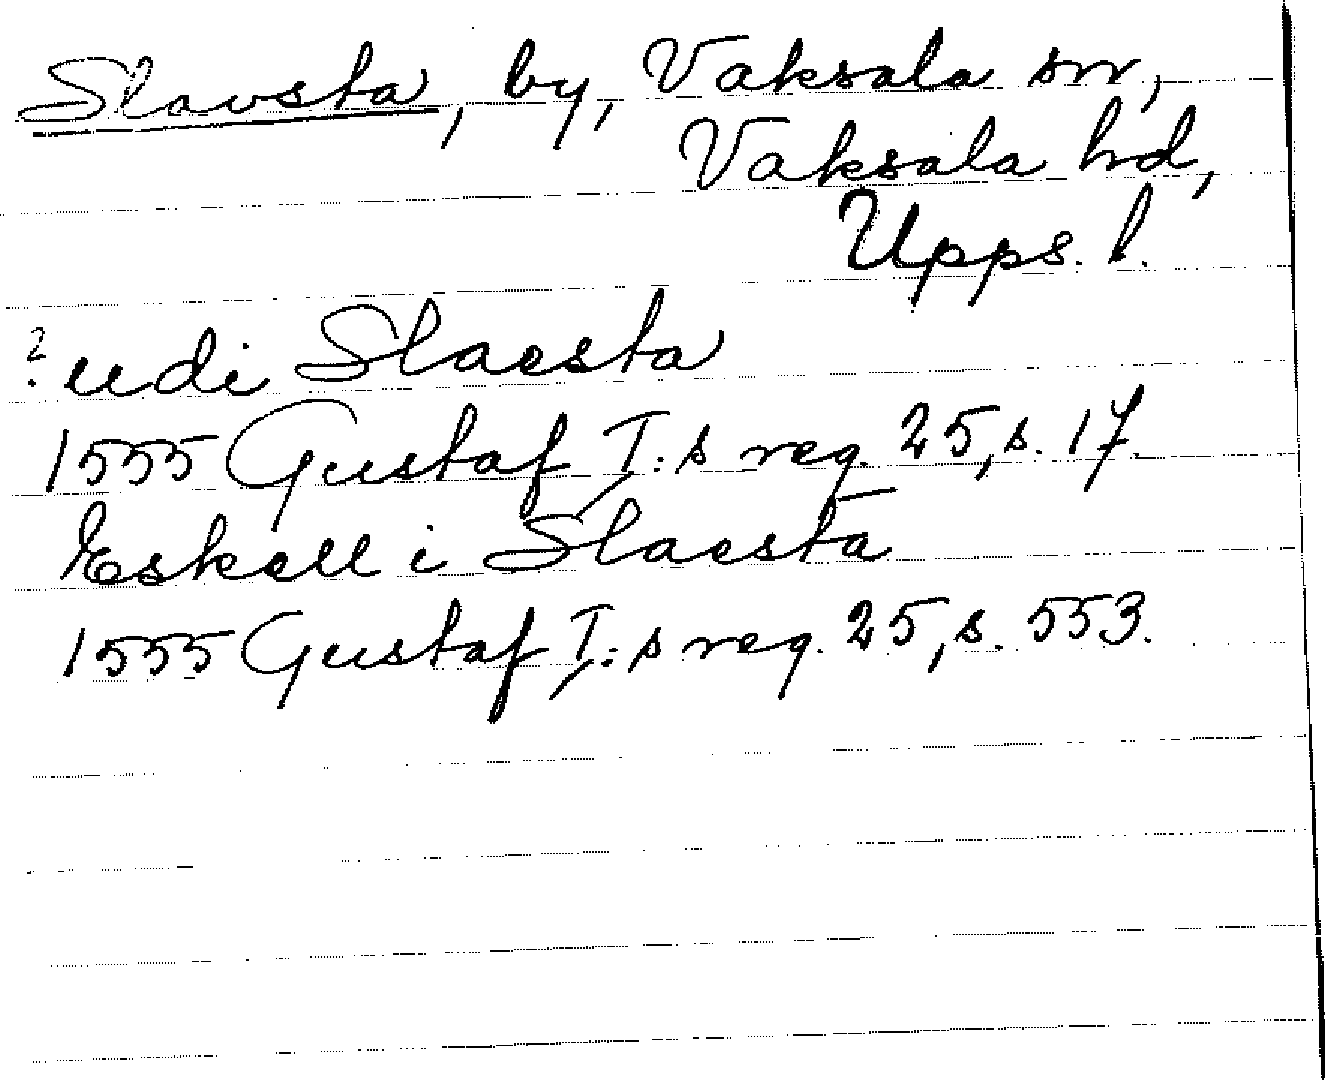 Slavsta, by, Vaksala sn,
Vaksala hd,
Upps. l.
? udi Slaesta
1555 Gustaf I:s reg. 25, s. 17.
Eskell i Slaesta
1555 Gustaf I:s reg. 25, s. 553.